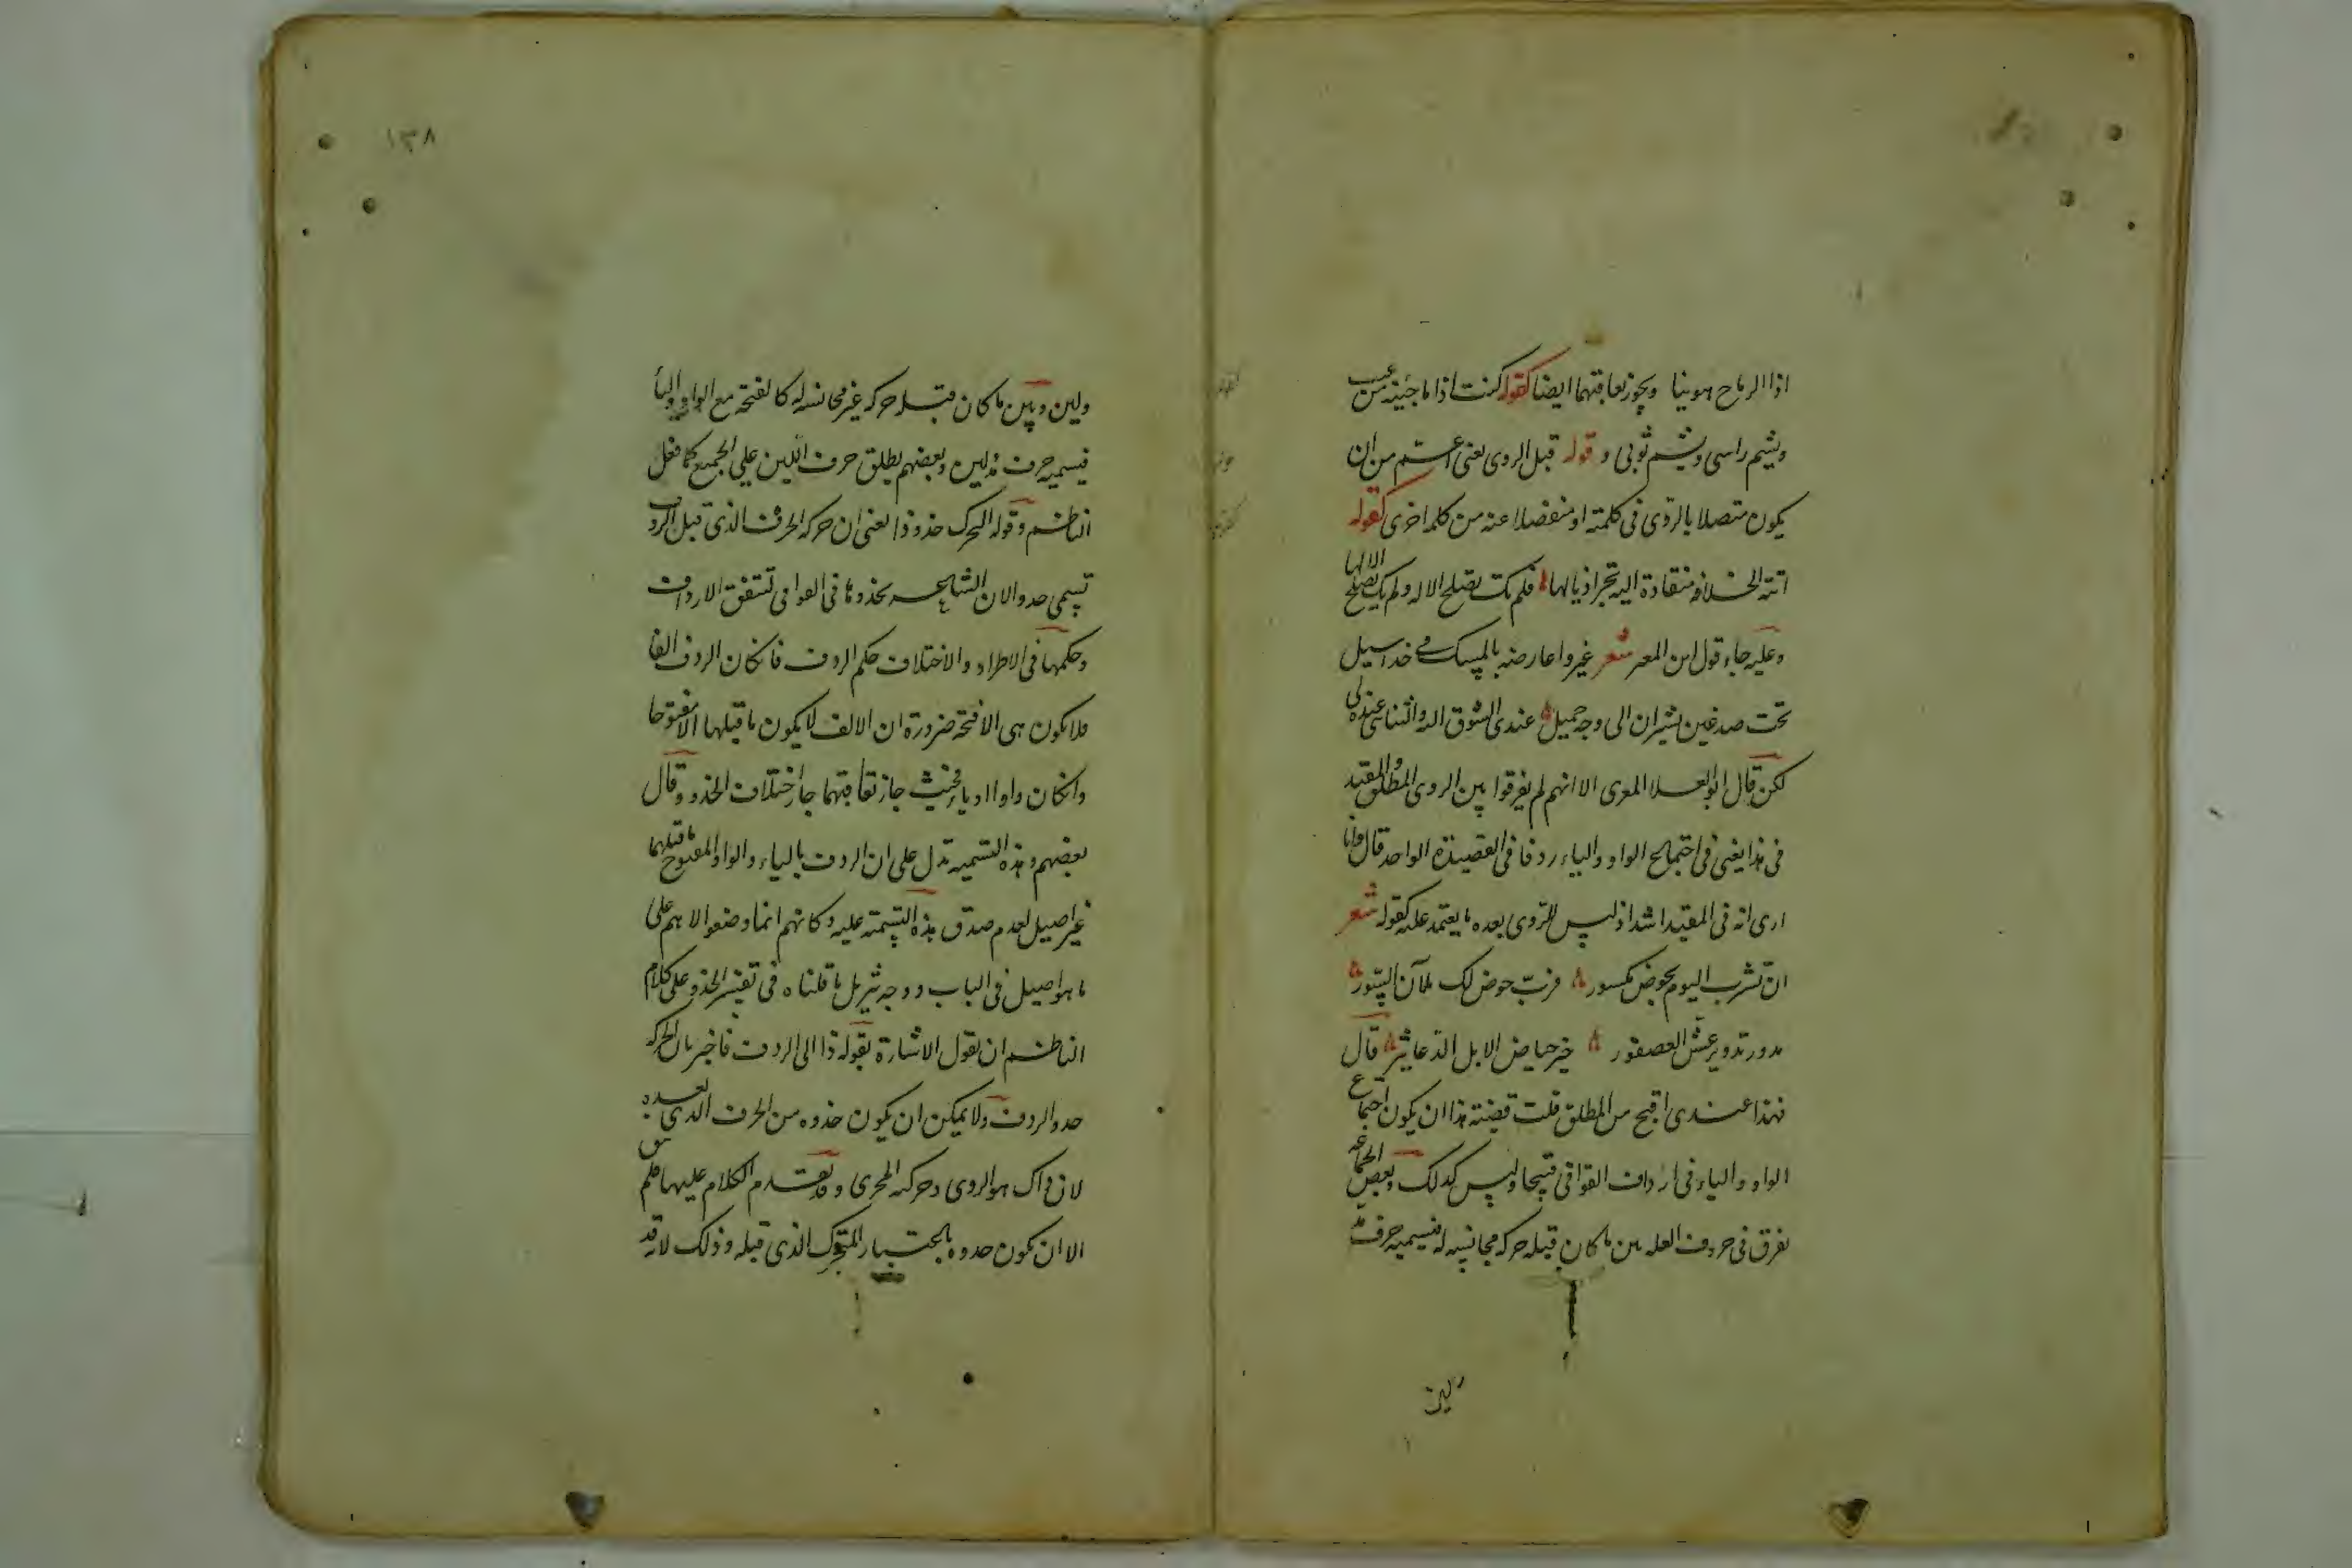 اذا الرماح هوينا ويجوز تعاقبهما ايضا كقوله كنت اذا ما جئته من غيب
ويشم راسى ويشم ثوبى وقوله قبل الروى يعنى اعم من ان
يكون متصلا بالروى فى كلمته او منفصلا عنه من كلمة اخرى كقوله
اتته الخلافة منقادة اليه تجرر اذيالها فلم تك تصلح الا له ولم يك يصلح الا لها
وعليه جاء قول ابن المعتز شعر غيروا عارضه بالمسك فى خد اسيل
تحت صدغين يشيران الى وجه جميل عندى الشوق اليه والتناسى عنده لى
لكن قال ابو العلا المعرى الا انهم لم يفرقوا بين الروى المطلق والمقيد
فى هذا يعنى فى اجتماع الواو والياء ردفا فى القصيدة الواحدة قال وانا
ارى انه فى المقيد اشد اذ ليس للروى بعده ما يعتمد عليه كقوله شعر
ان تشرب اليوم بحوض مكسور فرب حوض لك ملآن السور
مدور تدوير عش العصفور خير حياض الابل الدعاثير قال
فهذا عندى اقبح من المطلق قلت قضية هذا ان يكون اجتماع
الواو والياء فى ارداف القوافى قبيحا وليس كذلك وبعض الجماعة
يفرق فى حروف العلة بين ما كان قبله حركة مجانسة له فيسميه حرف مد
ولين
١٣٨
ولين وبين ما كان قبله حركة غير مجانسة له كالفتحة مع الواو والياء
فيسميه حرف لين وبعضهم يطلق حرف اللين على الجميع كما فعل
الناظم وقوله التحرك حذو ذا يعنى ان حركة الحرف الذى قبل الردف
تسمى حذوا لان الشاعر يحذوها فى القوافى لتتفق الارداف
وحكمها فى الاطراد والاختلاف حكم الردف فان كان الردف الفا
فلا يكون هى الا فتحة ضرورة ان الالف لا يكون ما قبلها الا مفتوحا
وان كان واوا او ياء فحيث جاز تعاقبهما جاز اختلاف الحذو وقال
بعضهم وهذه التسمية تدل على ان الردف بالياء والواو المفتوح ما قبلهما
غير اصيل لعدم صدق هذه التسمية عليه وكانهم انما وضعوا الاسم على
ما هو اصيل فى الباب ووجه تنزيل ما قلناه فى تفسير الحذو على كلام
الناظم ان نقول الاشارة بقوله ذا الى الردف فاخبر بان الحركة
حذو الردف ولا يمكن ان يكون حذوه من الحرف الذى بعده
لان ذاك هو الروى وحركته المجرى وقد تقدم الكلام عليها فلم يبق
الا ان تكون حذوه باعتبار المتحرك الذى قبله وذلك لانه